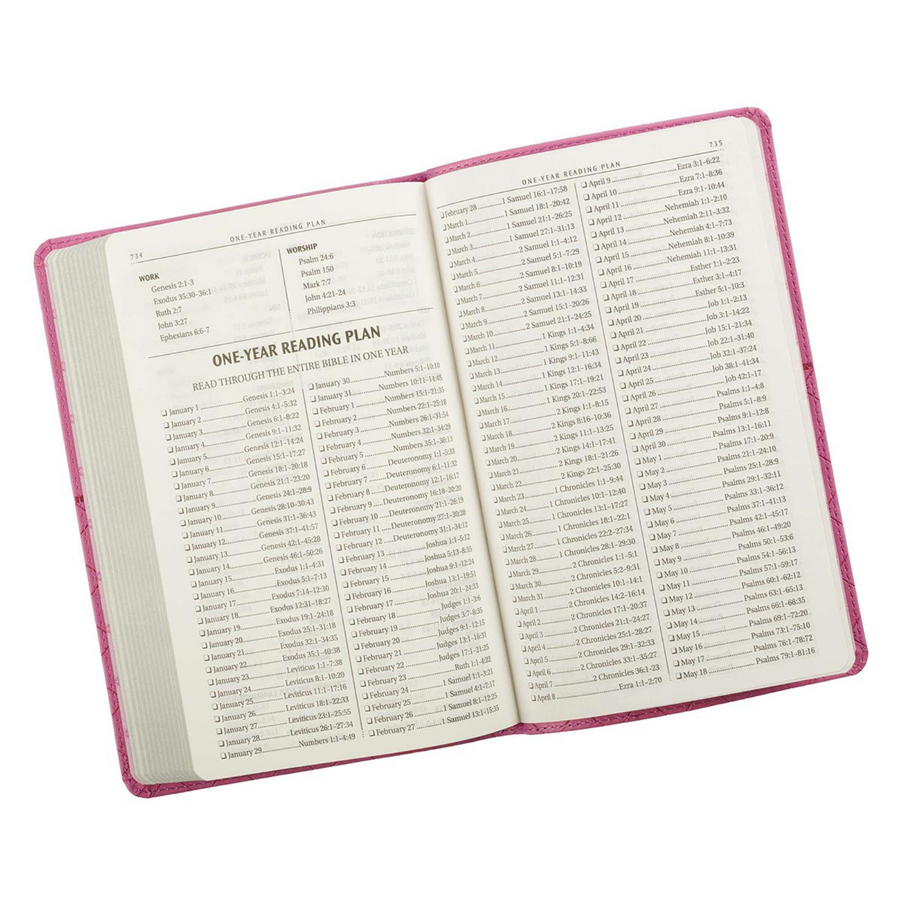 734
ONE-YEAR READING PLAN
WORK
Genesis 2:1-3
Exodus 35:30-36:1
Ruth 2:7
John 3:27
Ephesians 6:6-7
WORSHIP
Psalm 24:6
Psalm 150
Mark 7:7
John 4:21-24
Philippians 3:3
ONE-YEAR READING PLAN
READ THROUGH THE ENTIRE BIBLE IN ONE YEAR
January 1 Genesis 1:1-3:24
January 2 Genesis 4:1-5:32
January 3 Genesis 6:1-8:22
January 4 Genesis 9:1-11:32
January 5 Genesis 12:1-14:24
January 6 Genesis 15:1-17:27
January 7 Genesis 18:1-20:18
January 8 Genesis 21:1-23:20
January 9 Genesis 24:1-28:9
January 10 Genesis 28:10-30:43
January 11 Genesis 31:1-36:43
January 12 Genesis 37:1-41:57
January 13 Genesis 42:1-45:28
January 14 Genesis 46:1-50:26
January 15 Exodus 1:1-4:31
January 16 Exodus 5:1-7:13
January 17 Exodus 7:14-12:30
January 18 Exodus 12:31-18:27
January 19 Exodus 19:1-24:18
January 20 Exodus 25:1-31:18
January 21 Exodus 32:1-34:35
January 22 Exodus 35:1-40:38
January 23 Leviticus 1:1-7:38
January 24 Leviticus 8:1-10:20
January 25 Leviticus 11:1-17:16
January 26 Leviticus 18:1-22:33
January 27 Leviticus 23:1-25:55
January 28 Leviticus 26:1-27:34
January 29 Numbers 1:1-4:49
January 30 Numbers 5:1-10:10
January 31 Numbers 10:11-14:45
February 1 Numbers 15:1-21:35
February 2 Numbers 22:1-25:18
February 3 Numbers 26:1-31:54
February 4 Numbers 32:1-34:29
February 5 Numbers 35:1-36:13
February 6 Deuteronomy 1:1-5:33
February 7 Deuteronomy 6:1-11:32
February 8 Deuteronomy 12:1-16:17
February 9 Deuteronomy 16:18-20:20
February 10 Deuteronomy 21:1-26:19
February 11 Deuteronomy 27:1-30:20
February 12 Deuteronomy 31:1-34:12
February 13 Joshua 1:1-5:12
February 14 Joshua 5:13-8:35
February 15 Joshua 9:1-12:24
February 16 Joshua 13:1-19:51
February 17 Joshua 20:1-24:33
February 18 Judges 1:1-3:6
February 19 Judges 3:7-8:35
February 20 Judges 9:1-12:15
February 21 Judges 13:1-16:31
February 22 Judges 17:1-21:25
February 23 Ruth 1:1-4:22
February 24 1 Samuel 1:1-3:21
February 25 1 Samuel 4:1-7:17
February 26 1 Samuel 8:1-12:25
February 27 1 Samuel 13:1-15:35
ONE-YEAR READING PLAN
735
February 28 1 Samuel 16:1-17:58
March 1 1 Samuel 18:1-20:42
March 2 1 Samuel 21:1-26:25
March 3 1 Samuel 27:1-31:13
March 4 2 Samuel 1:1-4:12
March 5 2 Samuel 5:1-7:29
March 6 2 Samuel 8:1-10:19
March 7 2 Samuel 11:1-12:31
March 8 2 Samuel 13:1-14:33
March 9 2 Samuel 15:1-20:26
March 10 2 Samuel 21:1-24:25
March 11 1 Kings 1:1-4:34
March 12 1 Kings 5:1-8:66
March 13 1 Kings 9:1-11:43
March 14 1 Kings 12:1-16:34
March 15 1 Kings 17:1-19:21
March 16 1 Kings 20:1-22:53
March 17 2 Kings 1:1-8:15
March 18 2 Kings 8:16-10:36
March 19 2 Kings 11:1-13:25
March 20 2 Kings 14:1-17:41
March 21 2 Kings 18:1-21:26
March 22 2 Kings 22:1-25:30
March 23 1 Chronicles 1:1-9:44
March 24 1 Chronicles 10:1-12:40
March 25 1 Chronicles 13:1-17:27
March 26 1 Chronicles 18:1-22:1
March 27 1 Chronicles 22:2-27:34
March 28 1 Chronicles 28:1-29:30
March 29 2 Chronicles 1:1-5:1
March 30 2 Chronicles 5:2-9:31
March 31 2 Chronicles 10:1-14:1
April 1 2 Chronicles 14:2-16:14
April 2 2 Chronicles 17:1-20:37
April 3 2 Chronicles 21:1-24:27
April 4 2 Chronicles 25:1-28:27
April 5 2 Chronicles 29:1-32:33
April 6 2 Chronicles 33:1-35:27
April 7 2 Chronicles 36:1-23
April 8 Ezra 1:1-2:70
April 9 Ezra 3:1-6:22
April 10 Ezra 7:1-8:36
April 11 Ezra 9:1-10:44
April 12 Nehemiah 1:1-2:10
April 13 Nehemiah 2:11-3:32
April 14 Nehemiah 4:1-7:73
April 15 Nehemiah 8:1-10:39
April 16 Nehemiah 11:1-13:31
April 17 Esther 1:1-2:23
April 18 Esther 3:1-4:17
April 19 Esther 5:1-10:3
April 20 Job 1:1-2:13
April 21 Job 3:1-14:22
April 22 Job 15:1-21:34
April 23 Job 22:1-31:40
April 24 Job 32:1-37:24
April 25 Job 38:1-41:34
April 26 Job 42:1-17
April 27 Psalms 1:1-4:8
April 28 Psalms 5:1-8:9
April 29 Psalms 9:1-12:8
April 30 Psalms 13:1-16:11
May 1 Psalms 17:1-20:9
May 2 Psalms 21:1-24:10
May 3 Psalms 25:1-28:9
May 4 Psalms 29:1-32:11
May 5 Psalms 33:1-36:12
May 6 Psalms 37:1-41:13
May 7 Psalms 42:1-45:17
May 8 Psalms 46:1-49:20
May 9 Psalms 50:1-53:6
May 10 Psalms 54:1-56:13
May 11 Psalms 57:1-59:17
May 12 Psalms 60:1-62:12
May 13 Psalms 63:1-65:13
May 14 Psalms 66:1-68:35
May 15 Psalms 69:1-72:20
May 16 Psalms 73:1-75:10
May 17 Psalms 76:1-78:72
May 18 Psalms 79:1-81:16